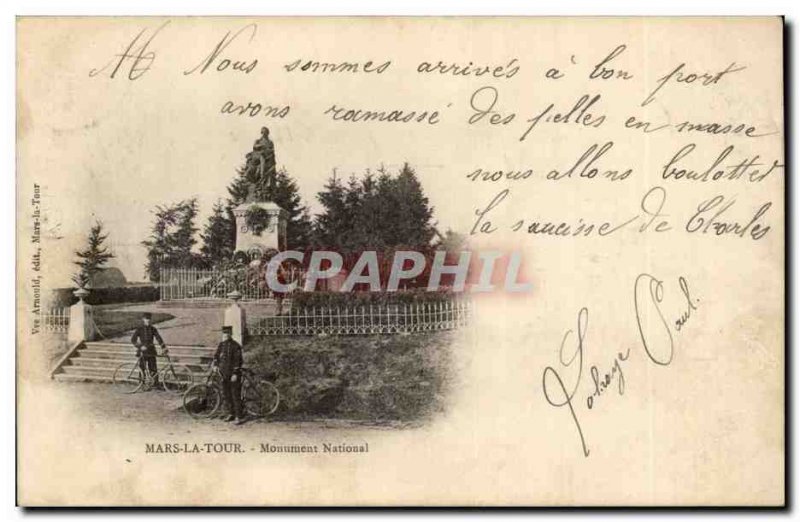 Nous sommes arrivés à bon port
avons ramassé des pelles en masse
nous allons boulotter
la saucisse de Charles
Paul
CPARAMA
CPARPHIL
Vve Arnould, édit., Mars-la-Tour
MARS-LA-TOUR. - Monument National